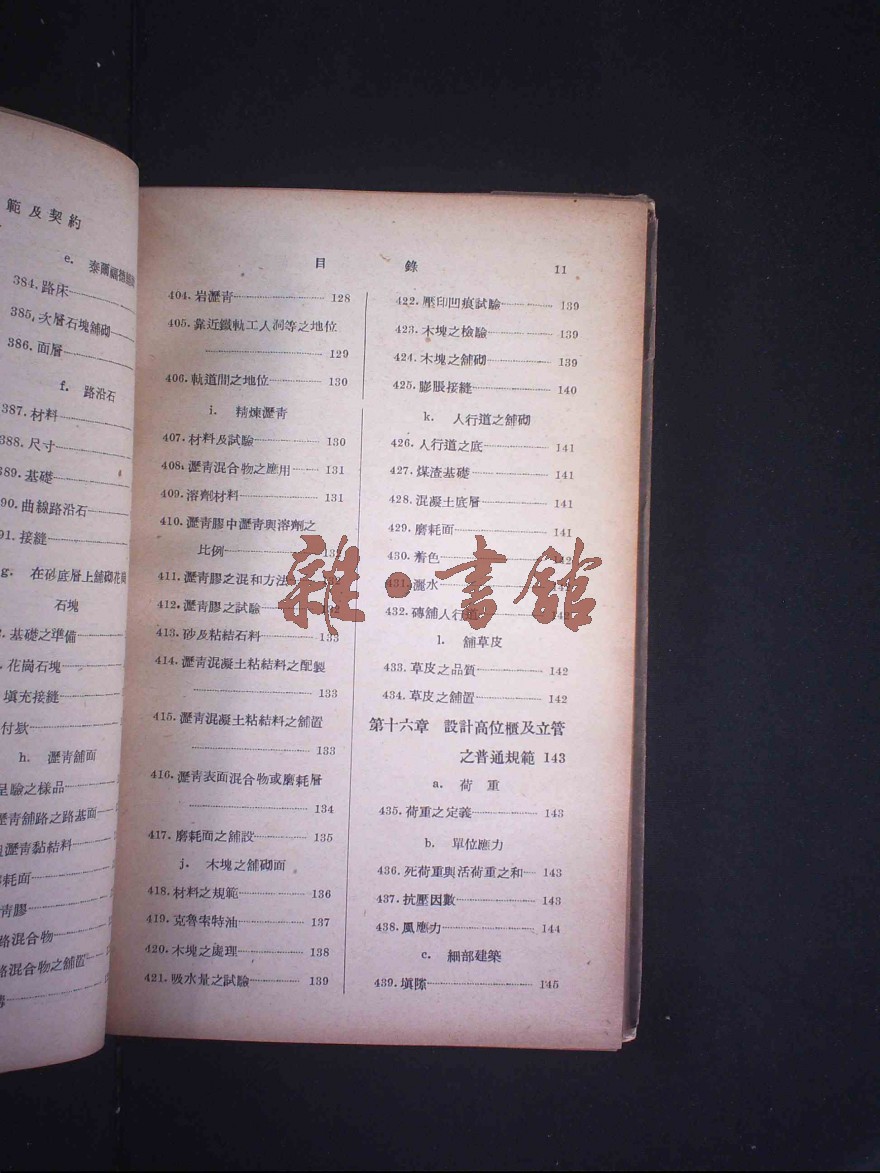 範及契約
e. 泰爾福德
384.路床
385.次層石塊舖砌
386.面層
f. 路沿石
387.材料
388.尺寸
389.基礎
90.曲線路沿石
91.接縫
g. 在砂底層上舖砌花崗
石塊
基礎之準備
花崗石塊
填充接縫
付款
h. 瀝青舖面
呈驗之樣品
瀝青舖路之路基面
瀝青黏結料
耗面
青膠
路混合物
路混合物之舖置
目 錄 11
404.岩瀝青 128
405.靠近鐵軌工人洞等之地位
129
406.軌道間之地位 130
i. 精煉瀝青
407.材料及試驗 130
408.瀝青混合物之應用 131
409.溶劑材料 131
410.瀝青膠中瀝青與溶劑之
比例 132
411.瀝青膠之混和方法 132
412.瀝青膠之試驗 132
413.砂及粘結石料 133
414.瀝青混凝土粘結料之配製
133
415.瀝青混凝土粘結料之舖置
133
416.瀝青表面混合物或磨耗層
134
417.磨耗面之舖設 135
j. 木塊之舖砌面
418.材料之規範 136
419.克魯索特油 137
420.木塊之處理 138
421.吸水量之試驗 139
422.壓印凹痕試驗 139
423.木塊之檢驗 139
424.木塊之舖砌 139
425.膨脹接縫 140
k. 人行道之舖砌
426.人行道之底 141
427.煤渣基礎 141
428.混凝土底層 141
429.磨耗面 141
430.着色 142
431.灑水 142
432.磚舖人行道 142
l. 舖草皮
433.草皮之品質 142
434.草皮之舖置 142
第十六章 設計高位櫃及立管
之普通規範 143
a. 荷重
435.荷重之定義 143
b. 單位應力
436.死荷重與活荷重之和 143
437.抗壓因數 143
438.風應力 144
c. 細部建築
439.塡隙 145
雜·書館